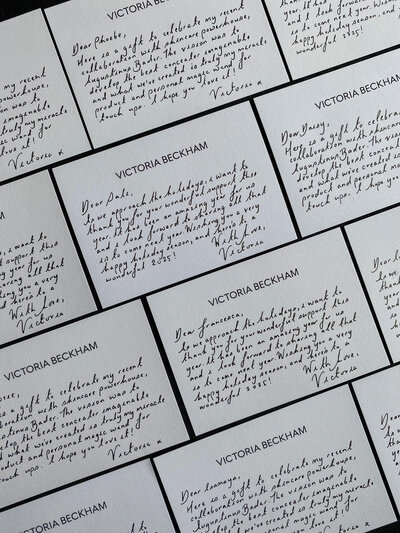 VICTORIA BECKHAM
Dear Phoebe,
Here is a gift to celebrate my recent
collaboration with skincare powerhouse,
Augustinus Bader. The vision was to
develop the best concealer imagenable
and what we've created is truly my miracle
product and personal magic wand for
touch ups. I hope you love it!
Victoria x
my recent
powerhouse,
was to
truly my miracle
for
love it!
Victoria x
wonderful 2025!
VICTORIA BECKHAM
Dear
As we approach the holidays, i want to
thank you for your wonderful support this
year. It has been an amazing year for us
and i look forward to sharing all that
is to come next year. Wishing you a very
happy holiday season, and here's to a
wonderful 2025!
With Love,
Victoria
VICTORIA
Dear
Here is a gift to
collaboration with skincare
Augustinus Bader. The vision
develop the best concealer
and what we've created is
product and personal
touch ups. I hope you
HAM
i want to
support this
year for us
all that
you a very
here's to a
With Love,
Victoria
VICTORIA BECKHAM
Dear Francesca,
As we approach the holidays, i want to
thank you for your wonderful support this
year. It has been an amazing year for us
and i look forward to sharing all that
is to come next year. Wishing you a very
happy holiday season, and here's to a
wonderful 2025!
With Love,
Victoria
VICTORIA BECKHAM
is a gift to celebrate my recent
collaboration with skincare powerhouse,
Augustinus Bader. The vision was to
the best concealer imagenable
and what we've created is truly my miracle
product and personal magic wand for
touch ups. I hope you love it!
Victoria x
VICTORIA BECKHAM
Dear
Here is a gift to celebrate my recent
collaboration with skincare powerhouse,
Augustinus Bader. The vision was to
develop the best concealer imagenable
we've created is truly my miracle
and personal magic wand for
I hope you love it!
Victoria x
VICTORIA BECKHAM